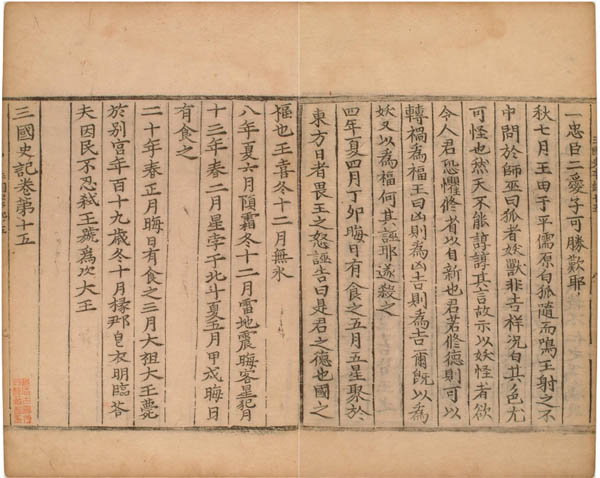 一忠臣二愛子可勝歎耶
秋七月王田于平儒原白狐隨而鳴王射之不
中問於師巫曰狐者妖獸非吉祥況白其色尤
可怪也然天不能諄諄其言故示以妖怪者欲
令人君恐懼修省以自新也君若修德則可以
轉禍爲福王曰凶則爲凶吉則爲吉爾旣以爲
妖又以爲福何其誣耶遂殺之
四年夏四月丁卯晦日有食之五月五星聚於
東方日者畏王之怒誣告曰是君之德也國之
福也王喜冬十二月無氷
八年夏六月隕霜冬十二月雷地震晦客星犯月
十三年春二月星孛于北斗夏五月甲戌晦日
有食之
二十年春正月晦日有食之三月大祖大王薨
於別宮年百十九歲冬十月椽那皂衣明臨荅
夫因民不忍弑王號爲次大王
三國史記卷第十五